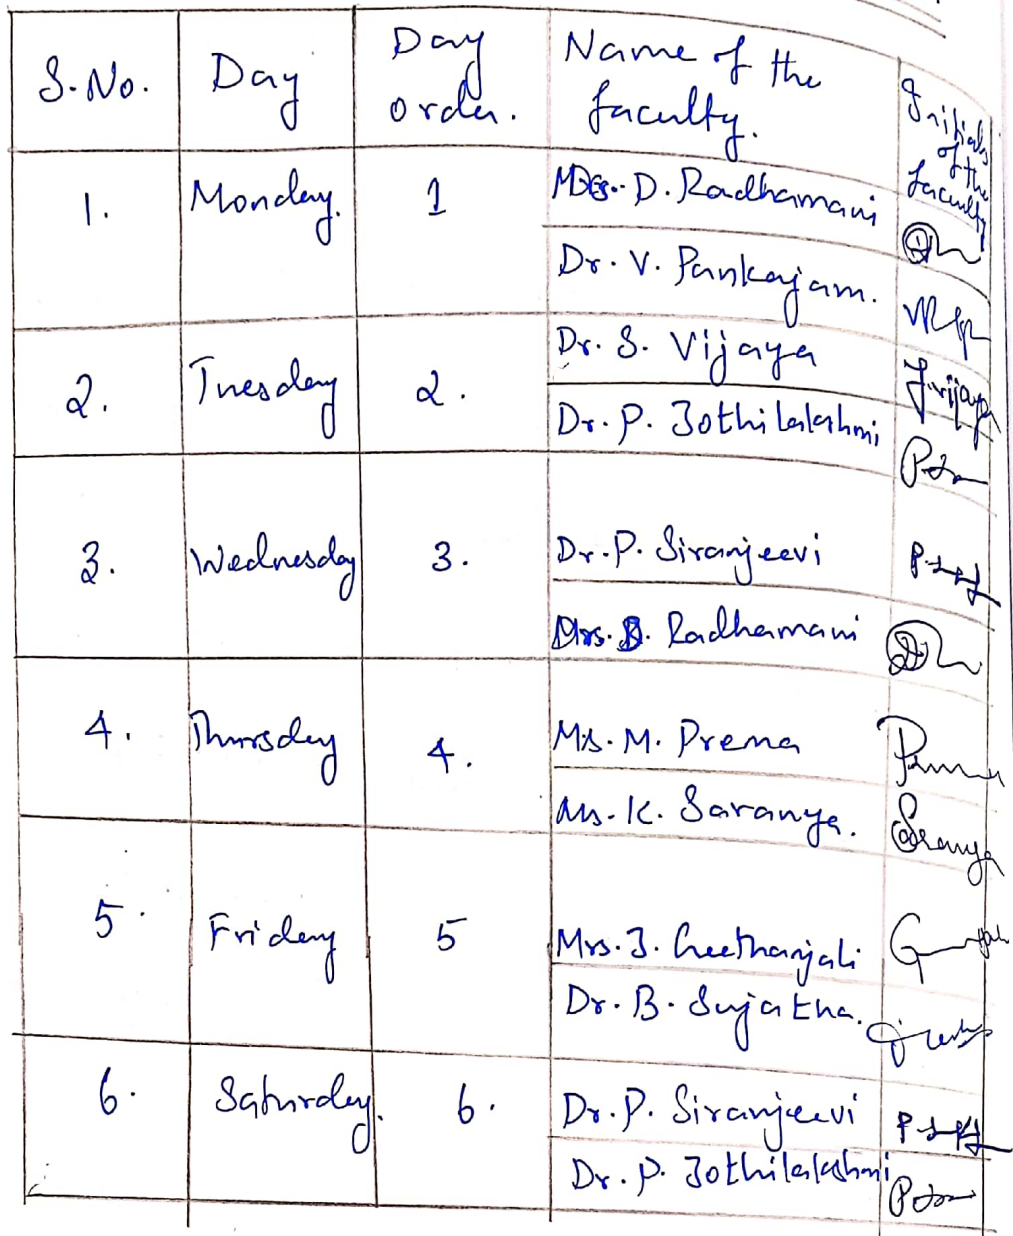 S.No. Day Day order. Name of the faculty. Initials of the faculty
1. Monday. 1 Mrs. D. Radhamani
Dr. V. Pankajam.
2. Tuesday 2. Dr. S. Vijaya S.Vijaya
Dr. P. Jothilakshmi
3. Wednesday 3. Dr. P. Siranjeevi
Mrs. D. Radhamani
4. Thursday 4. Ms. M. Prema
Ms. K. Saranya. Saranya
5. Friday 5 Mrs. J. Geethanjali
Dr. B. Sujatha.
6. Saturday. 6. Dr. P. Siranjeevi
Dr. P. Jothilalakshmi